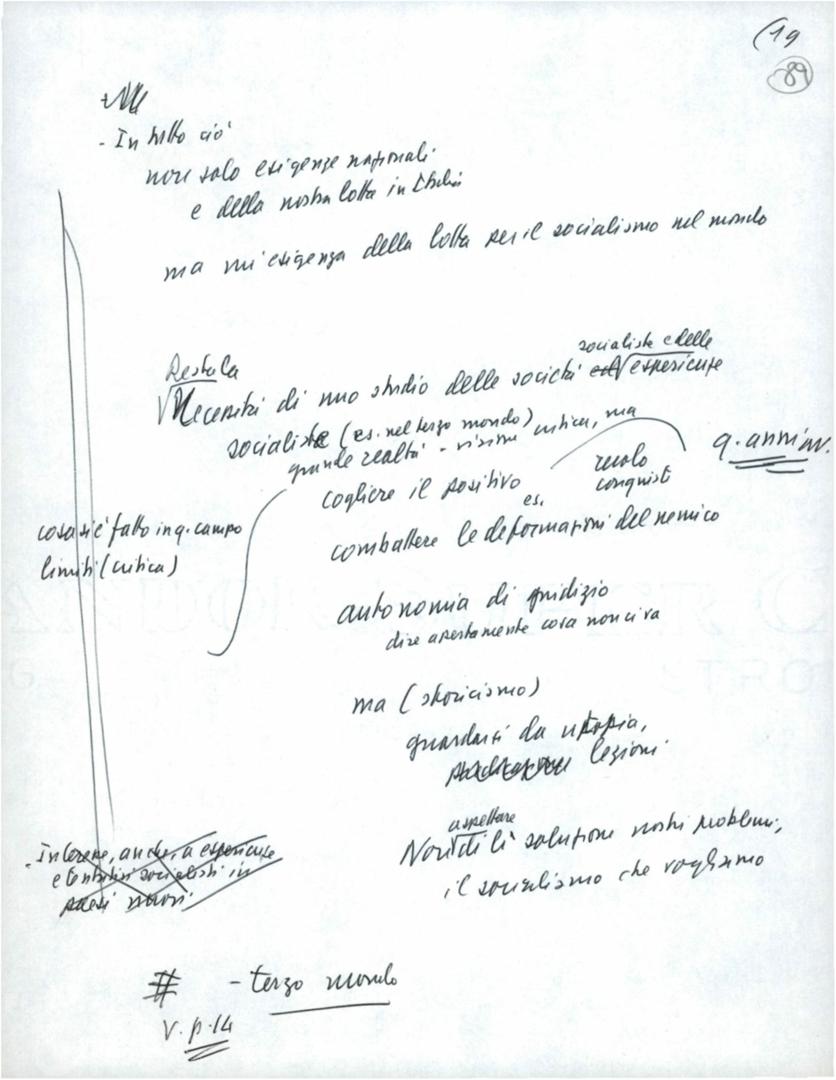 (19
89
- In tutto ciò
non solo esigenze nazionali
e della nostra lotta in Italia
ma un'esigenza della lotta per il socialismo nel mondo
Resta la
socialiste e delle
Necessità di uno studio delle società esperienze
socialiste (es. nel terzo mondo)
grande realtà - visione critica, ma
q. anniv.
cogliere il positivo
ruolo
conquiste
es.
combattere le deformazioni del nemico
cosa si è fatto in q. campo
limiti (critica)
autonomia di giudizio
dire apertamente cosa non ci va
ma (storicismo)
guardarsi da utopia,
lezioni
aspettare
Non di lì soluzione nostri problemi,
il socialismo che vogliamo
- Interesse, anche, a esperienze
e tentativi socialisti in
paesi nuovi
# - terzo mondo
V. p. 14